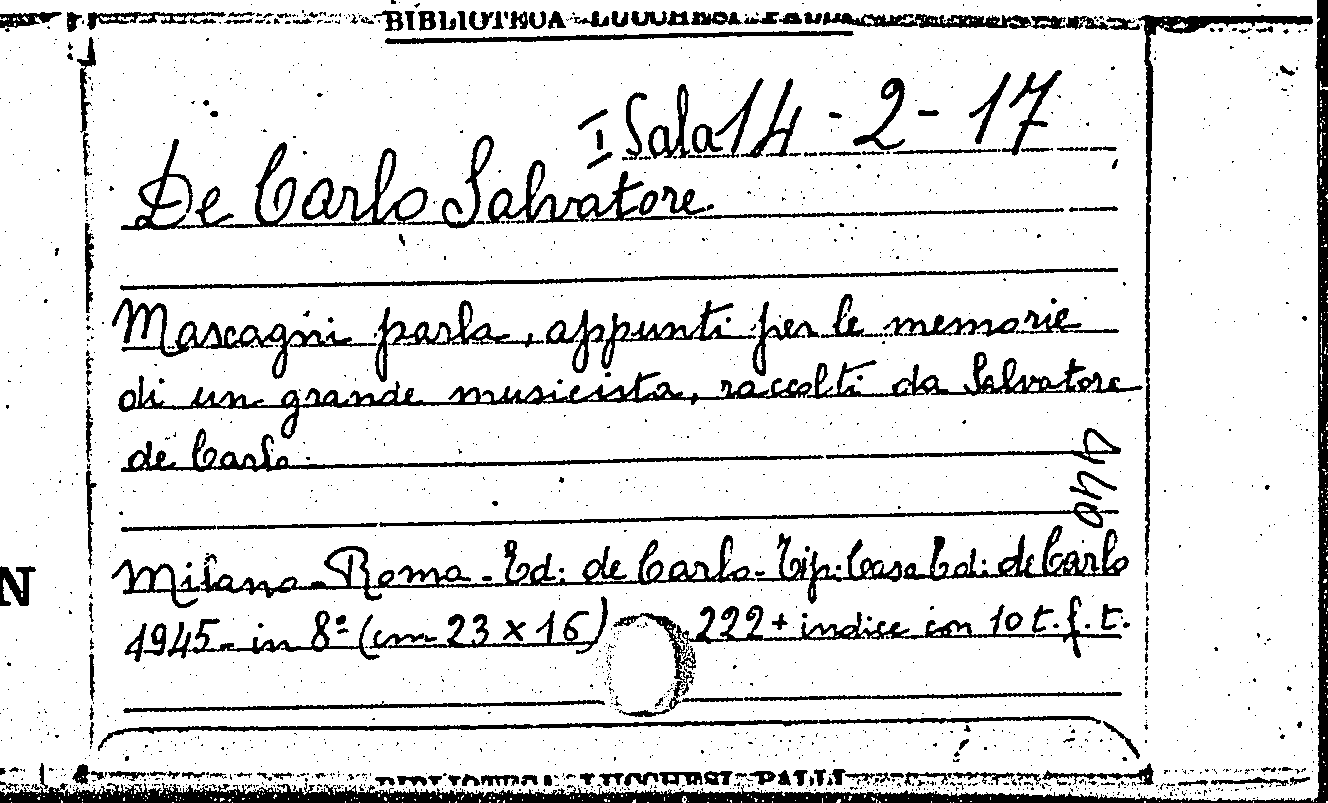 BIBLIOTECA LUCCHESI PALLI
I Sala 14 - 2 - 17
De Carlo Salvatore
Mascagni parla, appunti per le memorie
di un grande musicista, raccolti da Salvatore
de Carlo.
Milano - Roma - Ed: de Carlo - Tip: Casa Ed: de Carlo
1945 - in 8º (cm 23 x 16) 222 + indice con 10 t. f. t.
N
BIBLIOTECA LUCCHESI PALLI